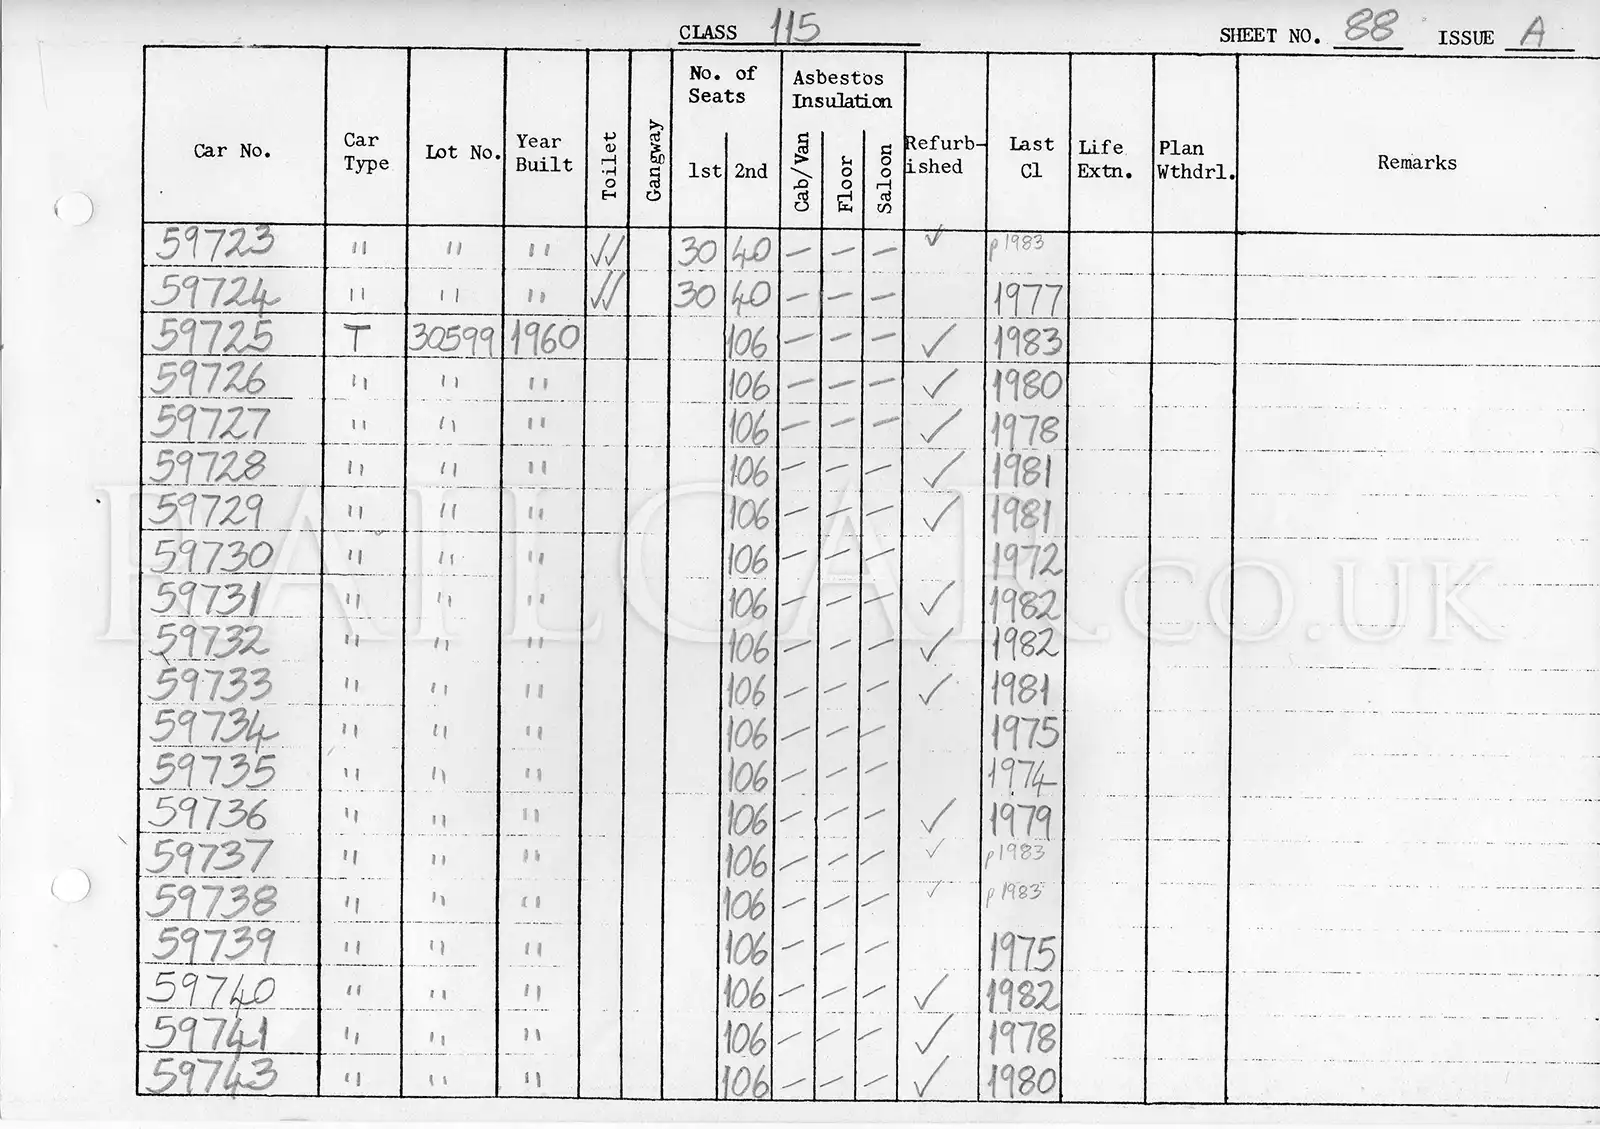 CLASS 115 SHEET NO. 88 ISSUE A
Car No. Car Type Lot No. Year Built Toilet Gangway No. of Seats 1st 2nd Asbestos Insulation Cab/Van Floor Saloon Refurb-ished Last Cl Life Extn. Plan Wthdrl. Remarks
59723 " " " ✓✓ 30 40 — — — ✓ p1983
59724 " " " ✓✓ 30 40 — — — 1977
59725 T 30599 1960 106 — — — ✓ 1983
59726 " " " 106 — — — ✓ 1980
59727 " " " 106 — — — ✓ 1978
59728 " " " 106 — — — ✓ 1981
59729 " " " 106 — — — ✓ 1981
59730 " " " 106 — — — 1972
59731 " " " 106 — — — ✓ 1982
59732 " " " 106 — — — ✓ 1982
59733 " " " 106 — — — ✓ 1981
59734 " " " 106 — — — 1975
59735 " " " 106 — — — 1974
59736 " " " 106 — — — ✓ 1979
59737 " " " 106 — — — ✓ p1983
59738 " " " 106 — — — ✓ p1983
59739 " " " 106 — — — 1975
59740 " " " 106 — — — ✓ 1982
59741 " " " 106 — — — ✓ 1978
59743 " " " 106 — — — ✓ 1980
RAILCAR.CO.UK